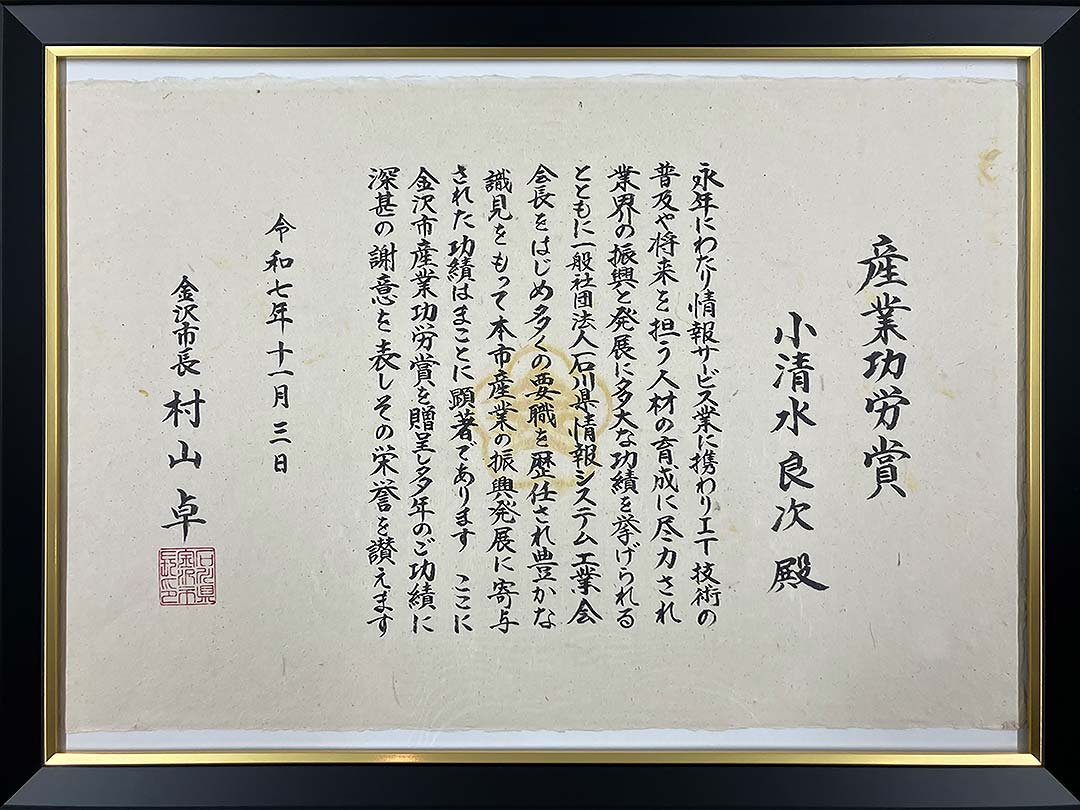 産業功労賞
小清水良次殿
永年にわたり情報サービス業に携わりIT技術の
普及や将来を担う人材の育成に尽力され
業界の振興と発展に多大な功績を挙げられる
とともに一般社団法人石川県情報システム工業会
会長をはじめ多くの要職を歴任され豊かな
識見をもって本市産業の振興発展に寄与
された功績はまことに顕著であります ここに
金沢市産業功労賞を贈呈し多年のご功績に
深甚の謝意を表しその栄誉を讃えます
令和七年十一月三日
金沢市長 村山卓
石川県
金沢市
長之印